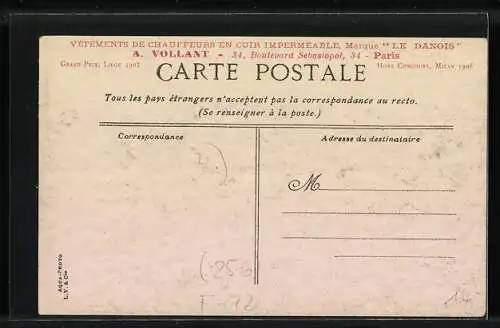 VÊTEMENTS DE CHAUFFEURS EN CUIR IMPERMÉABLE, Marque "LE DANOIS"
A. VOLLANT - 34, Boulevard Sébastopol, 34 - Paris
GRAND PRIX, LIÈGE 1905 HORS CONCOURS, MILAN 1906
CARTE POSTALE
Tous les pays étrangers n'acceptent pas la correspondance au recto.
(Se renseigner à la poste.)
Correspondance
Adresse du destinataire
M
AQUA-PHOTO
L.V. & Cie
(256
F-192